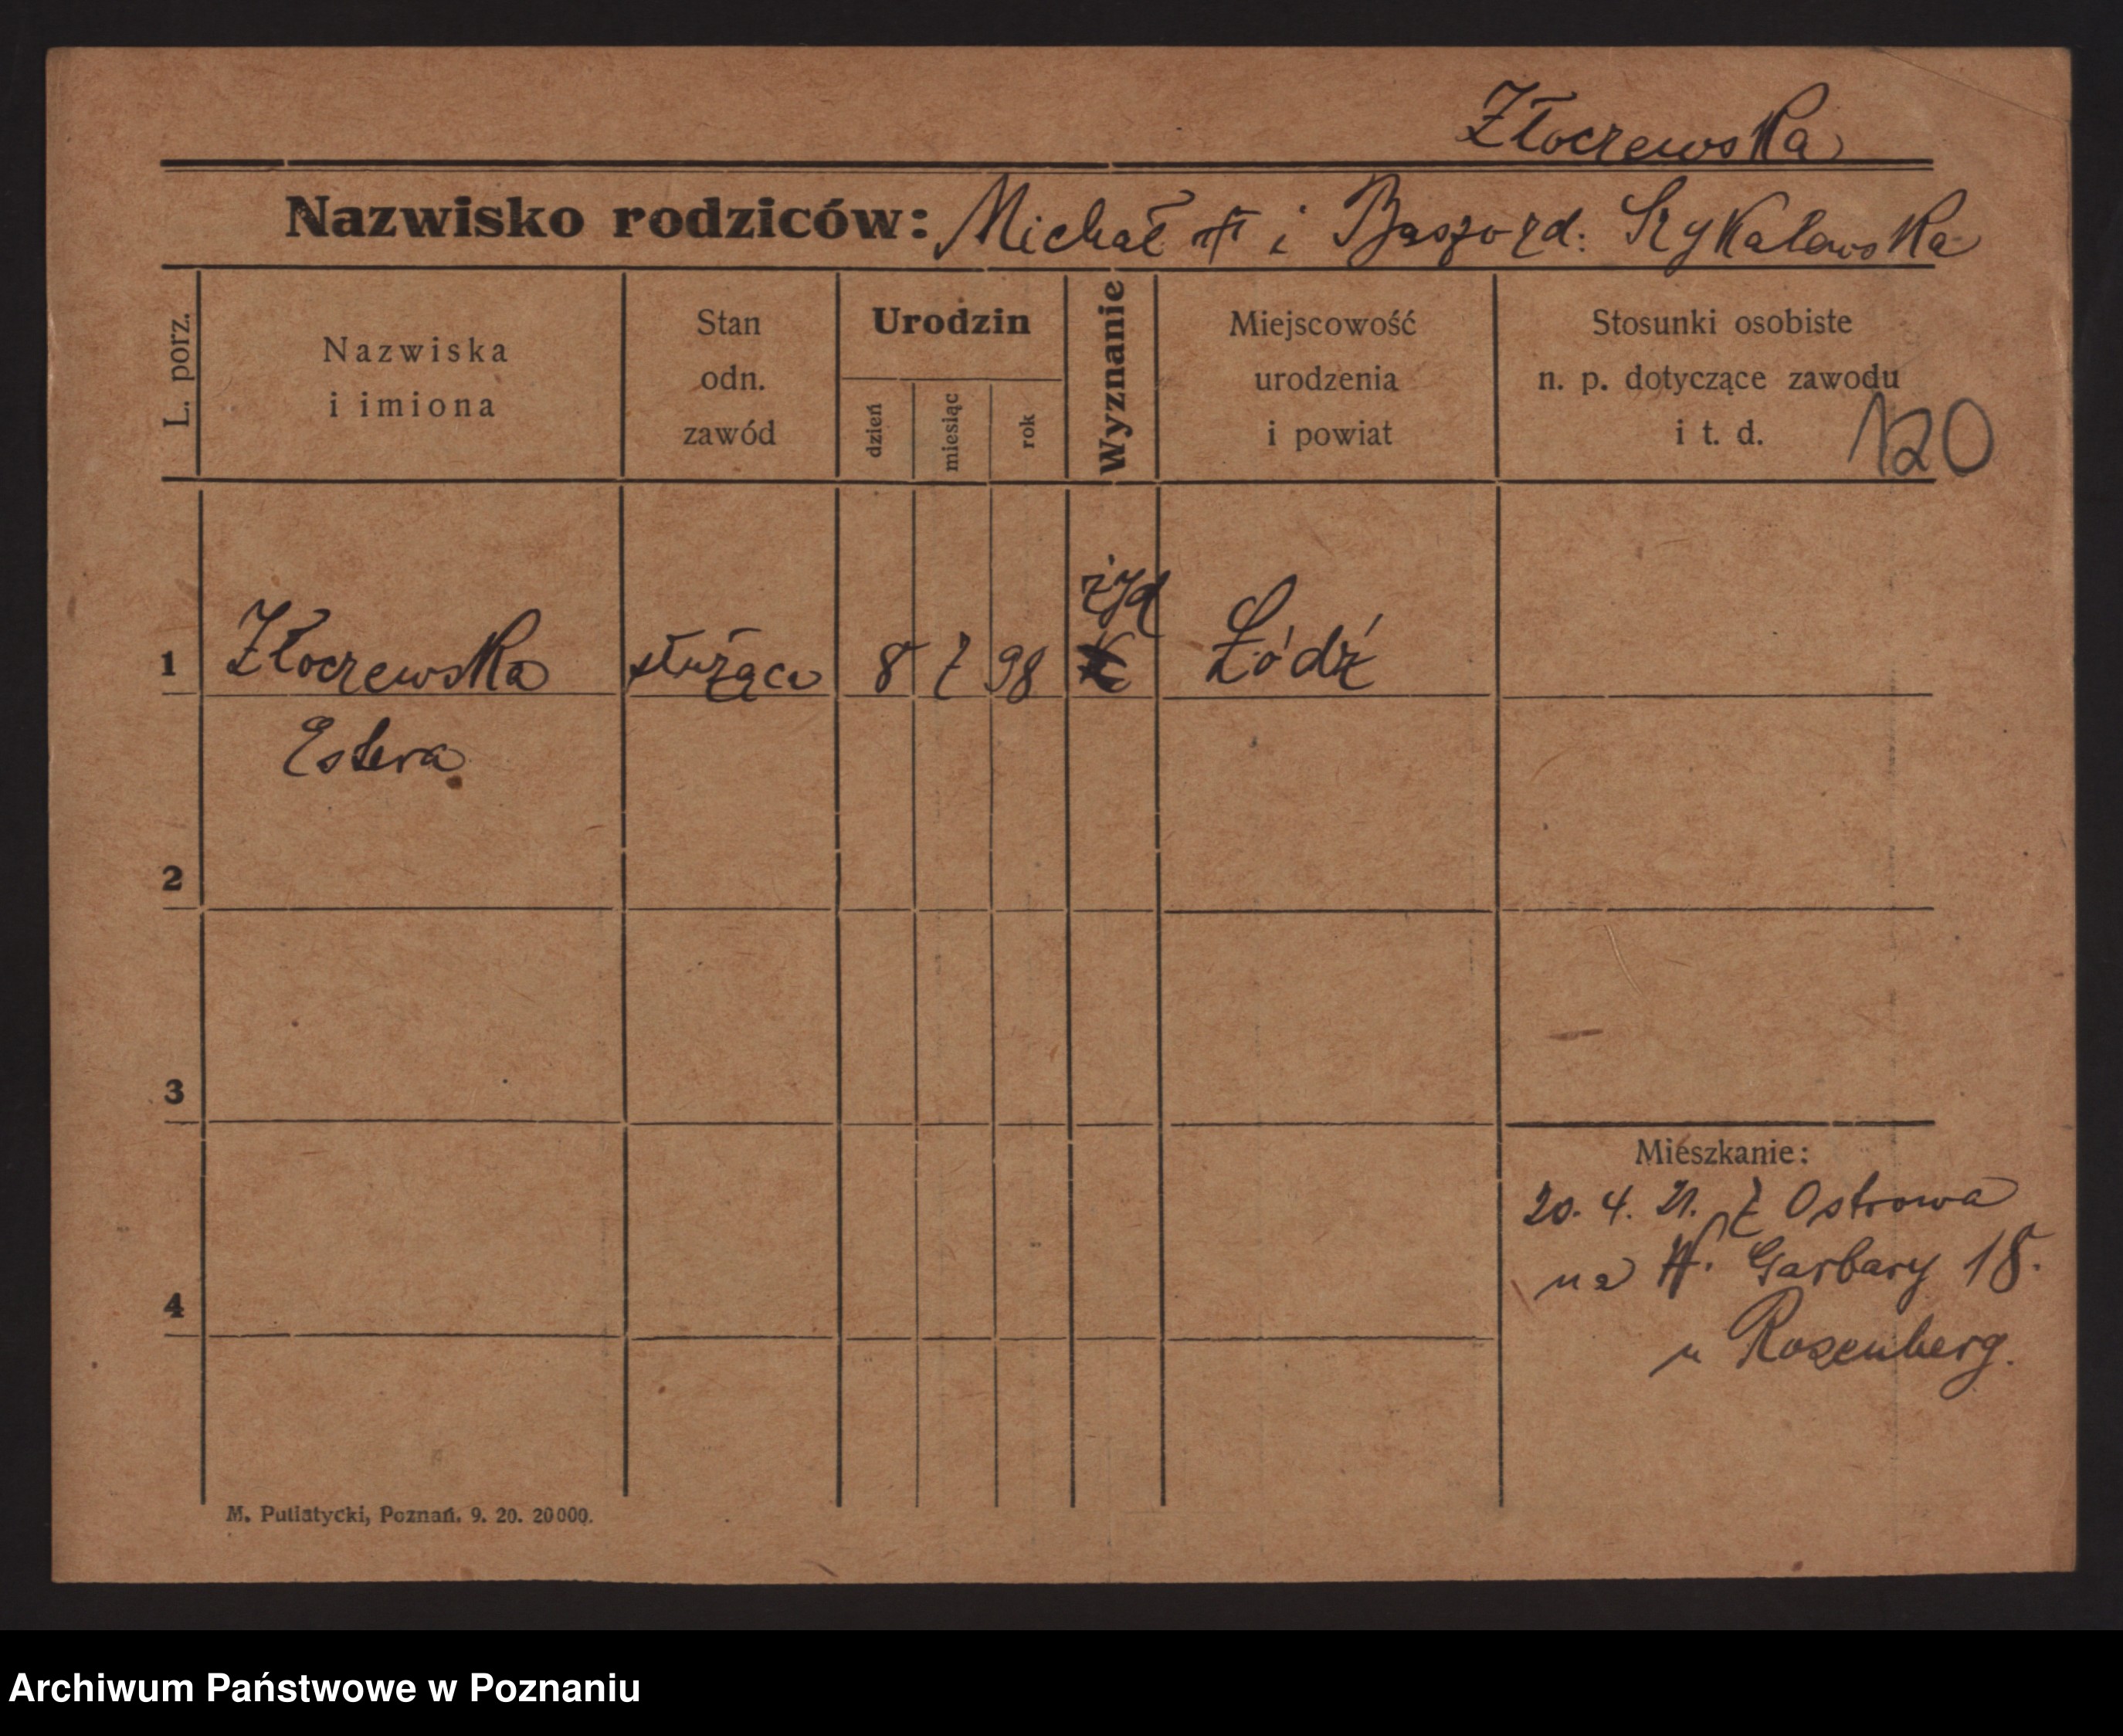 Złoczewska
Nazwisko rodziców: Michał i rd: Szykałowska
L. porz.
Nazwiska
i imiona
Stan
odn.
zawód
Urodzin
dzień
miesiąc
rok
Wyznanie
Miejscowość
urodzenia
i powiat
Stosunki osobiste
n. p. dotyczące zawodu
i t. d.
120
1 Złoczewska służąca 8 98 żyd Łódź
Estera
2
3
4
Mieszkanie:
20. 4. 21. Z Ostrowa
na W. Garbary 18.
u Rosenberg.
M. Putiatycki, Poznań, 9. 20. 20000.
Archiwum Państwowe w Poznaniu